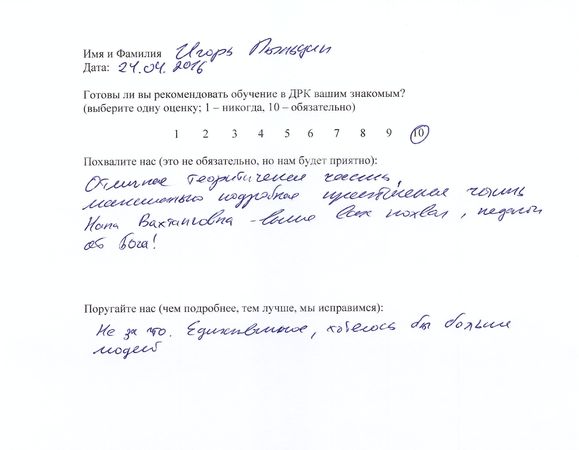 Имя и Фамилия Игорь
Дата: 24.04.2016
Готовы ли вы рекомендовать обучение в ДРК вашим знакомым?
(выберите одну оценку; 1 – никогда, 10 – обязательно)
1 2 3 4 5 6 7 8 9 10
Похвалите нас (это не обязательно, но нам будет приятно):
Отличная теоритическая часть,
максимально подробная практическая часть
Нана Вахтанговна - выше всех похвал, педагог
от Бога!
Поругайте нас (чем подробнее, тем лучше, мы исправимся):
Не за что. Единственное, хотелось бы больше
людей